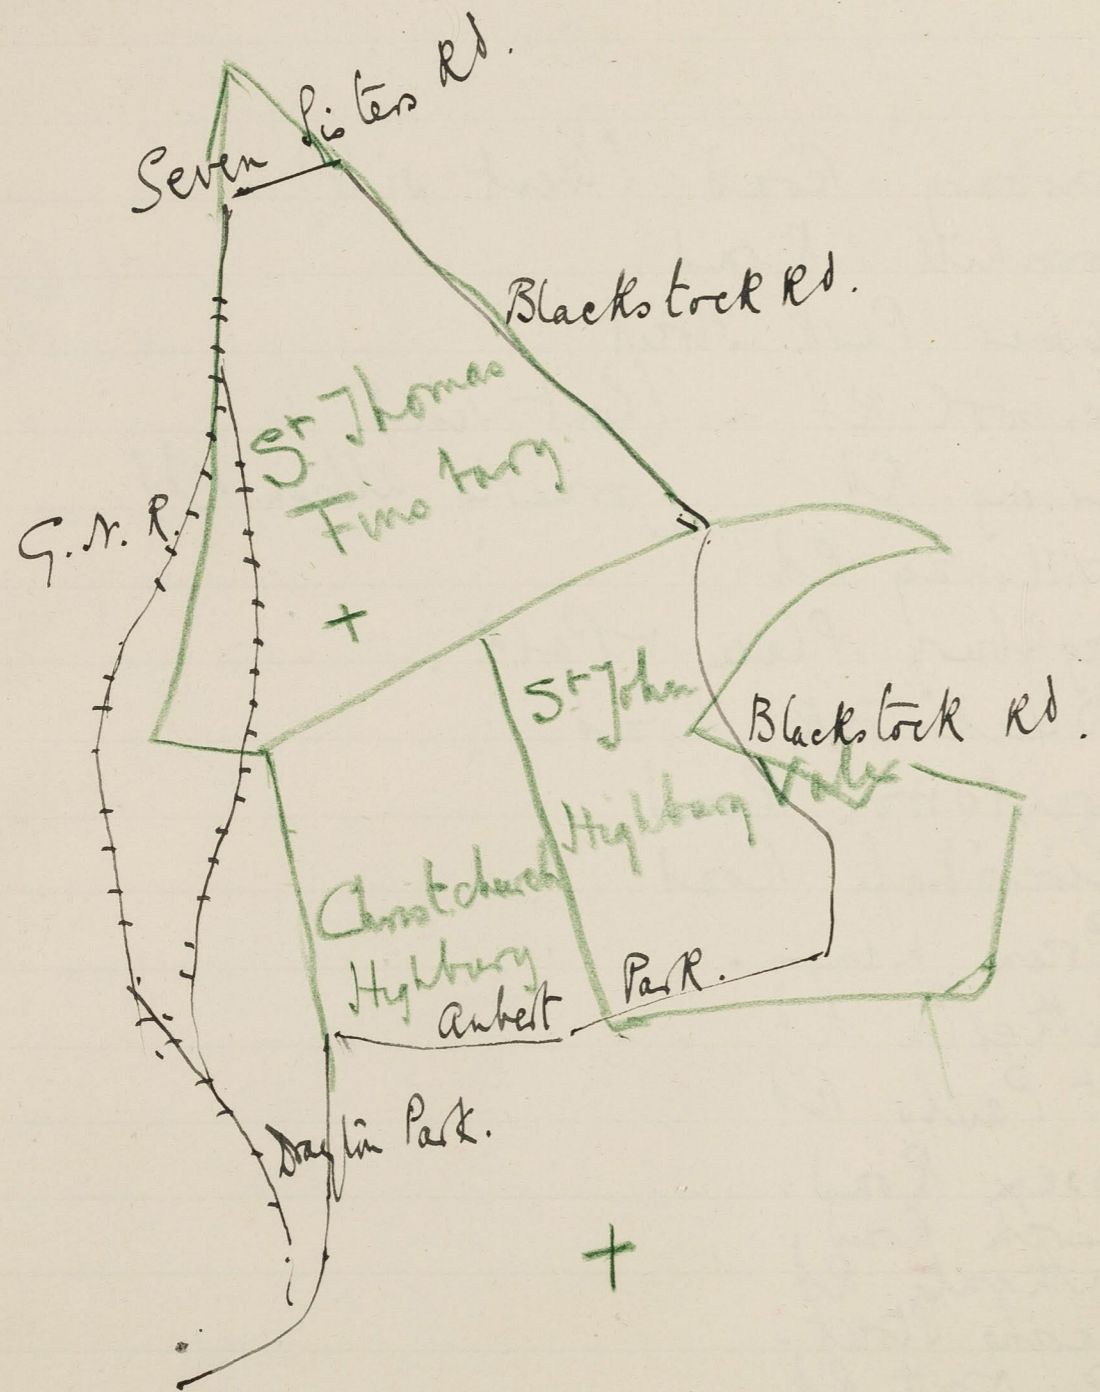 Seven Sisters Rd.
Blackstock Rd.
St Thomas
Finsbury
G. N. R.
St John
Highbury Vale
Blackstock Rd.
Christchurch
Highbury
Aubert Park.
Drayton Park.